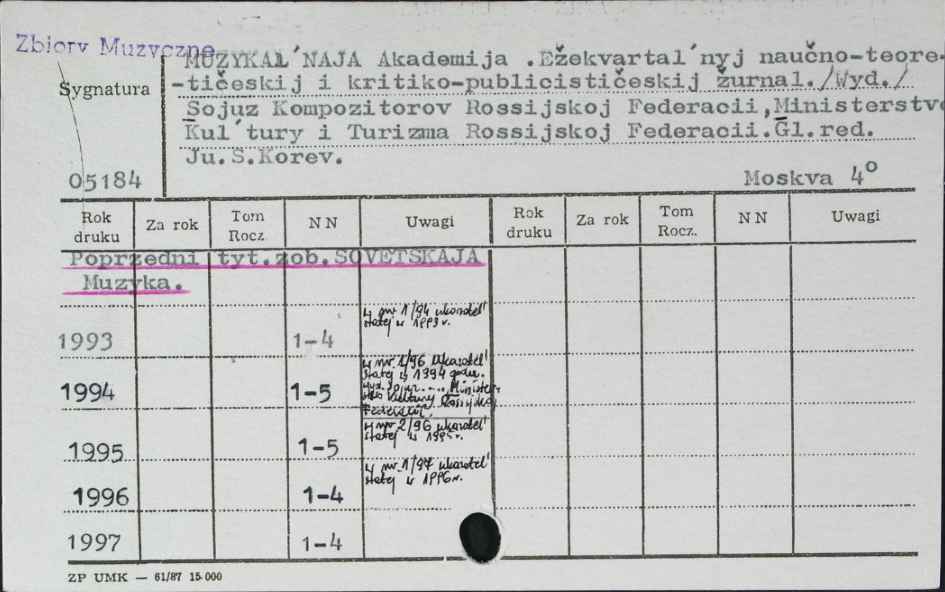 Zbiory Muzyczne
Sygnatura
05184
MUZYKAL´NAJA Akademija .Ežekvartal´nyj naučno-teore-
-tičeskij i kritiko-publicističeskij žurnal./Wyd./
Sojuz Kompozitorov Rossijskoj Federacii,Ministerstvo
Kul´tury i Turizma Rossijskoj Federacii.Gl.red.
Ju.S.Korev.
Moskva 4º
Rok druku Za rok Tom Rocz. NN Uwagi Rok druku Za rok Tom Rocz. NN Uwagi
Poprzedni tyt.zob.SOVETSKAJA
Muzyka.
1993 1-4 w nr 1/94 ukazatel' statej w 1993 r.
1994 1-5 w nr 2/96 ukazatel' statej w 1994 godu. Wyd. Sojuz .... Minister-stvo Kultury Rossijskoj Federacii.
1995 1-5 w nr 2/96 ukazatel' statej w 1995 r.
1996 1-4 w nr 1/97 ukazatel' statej w 1996 r.
1997 1-4
ZP UMK — 61/87 15 000